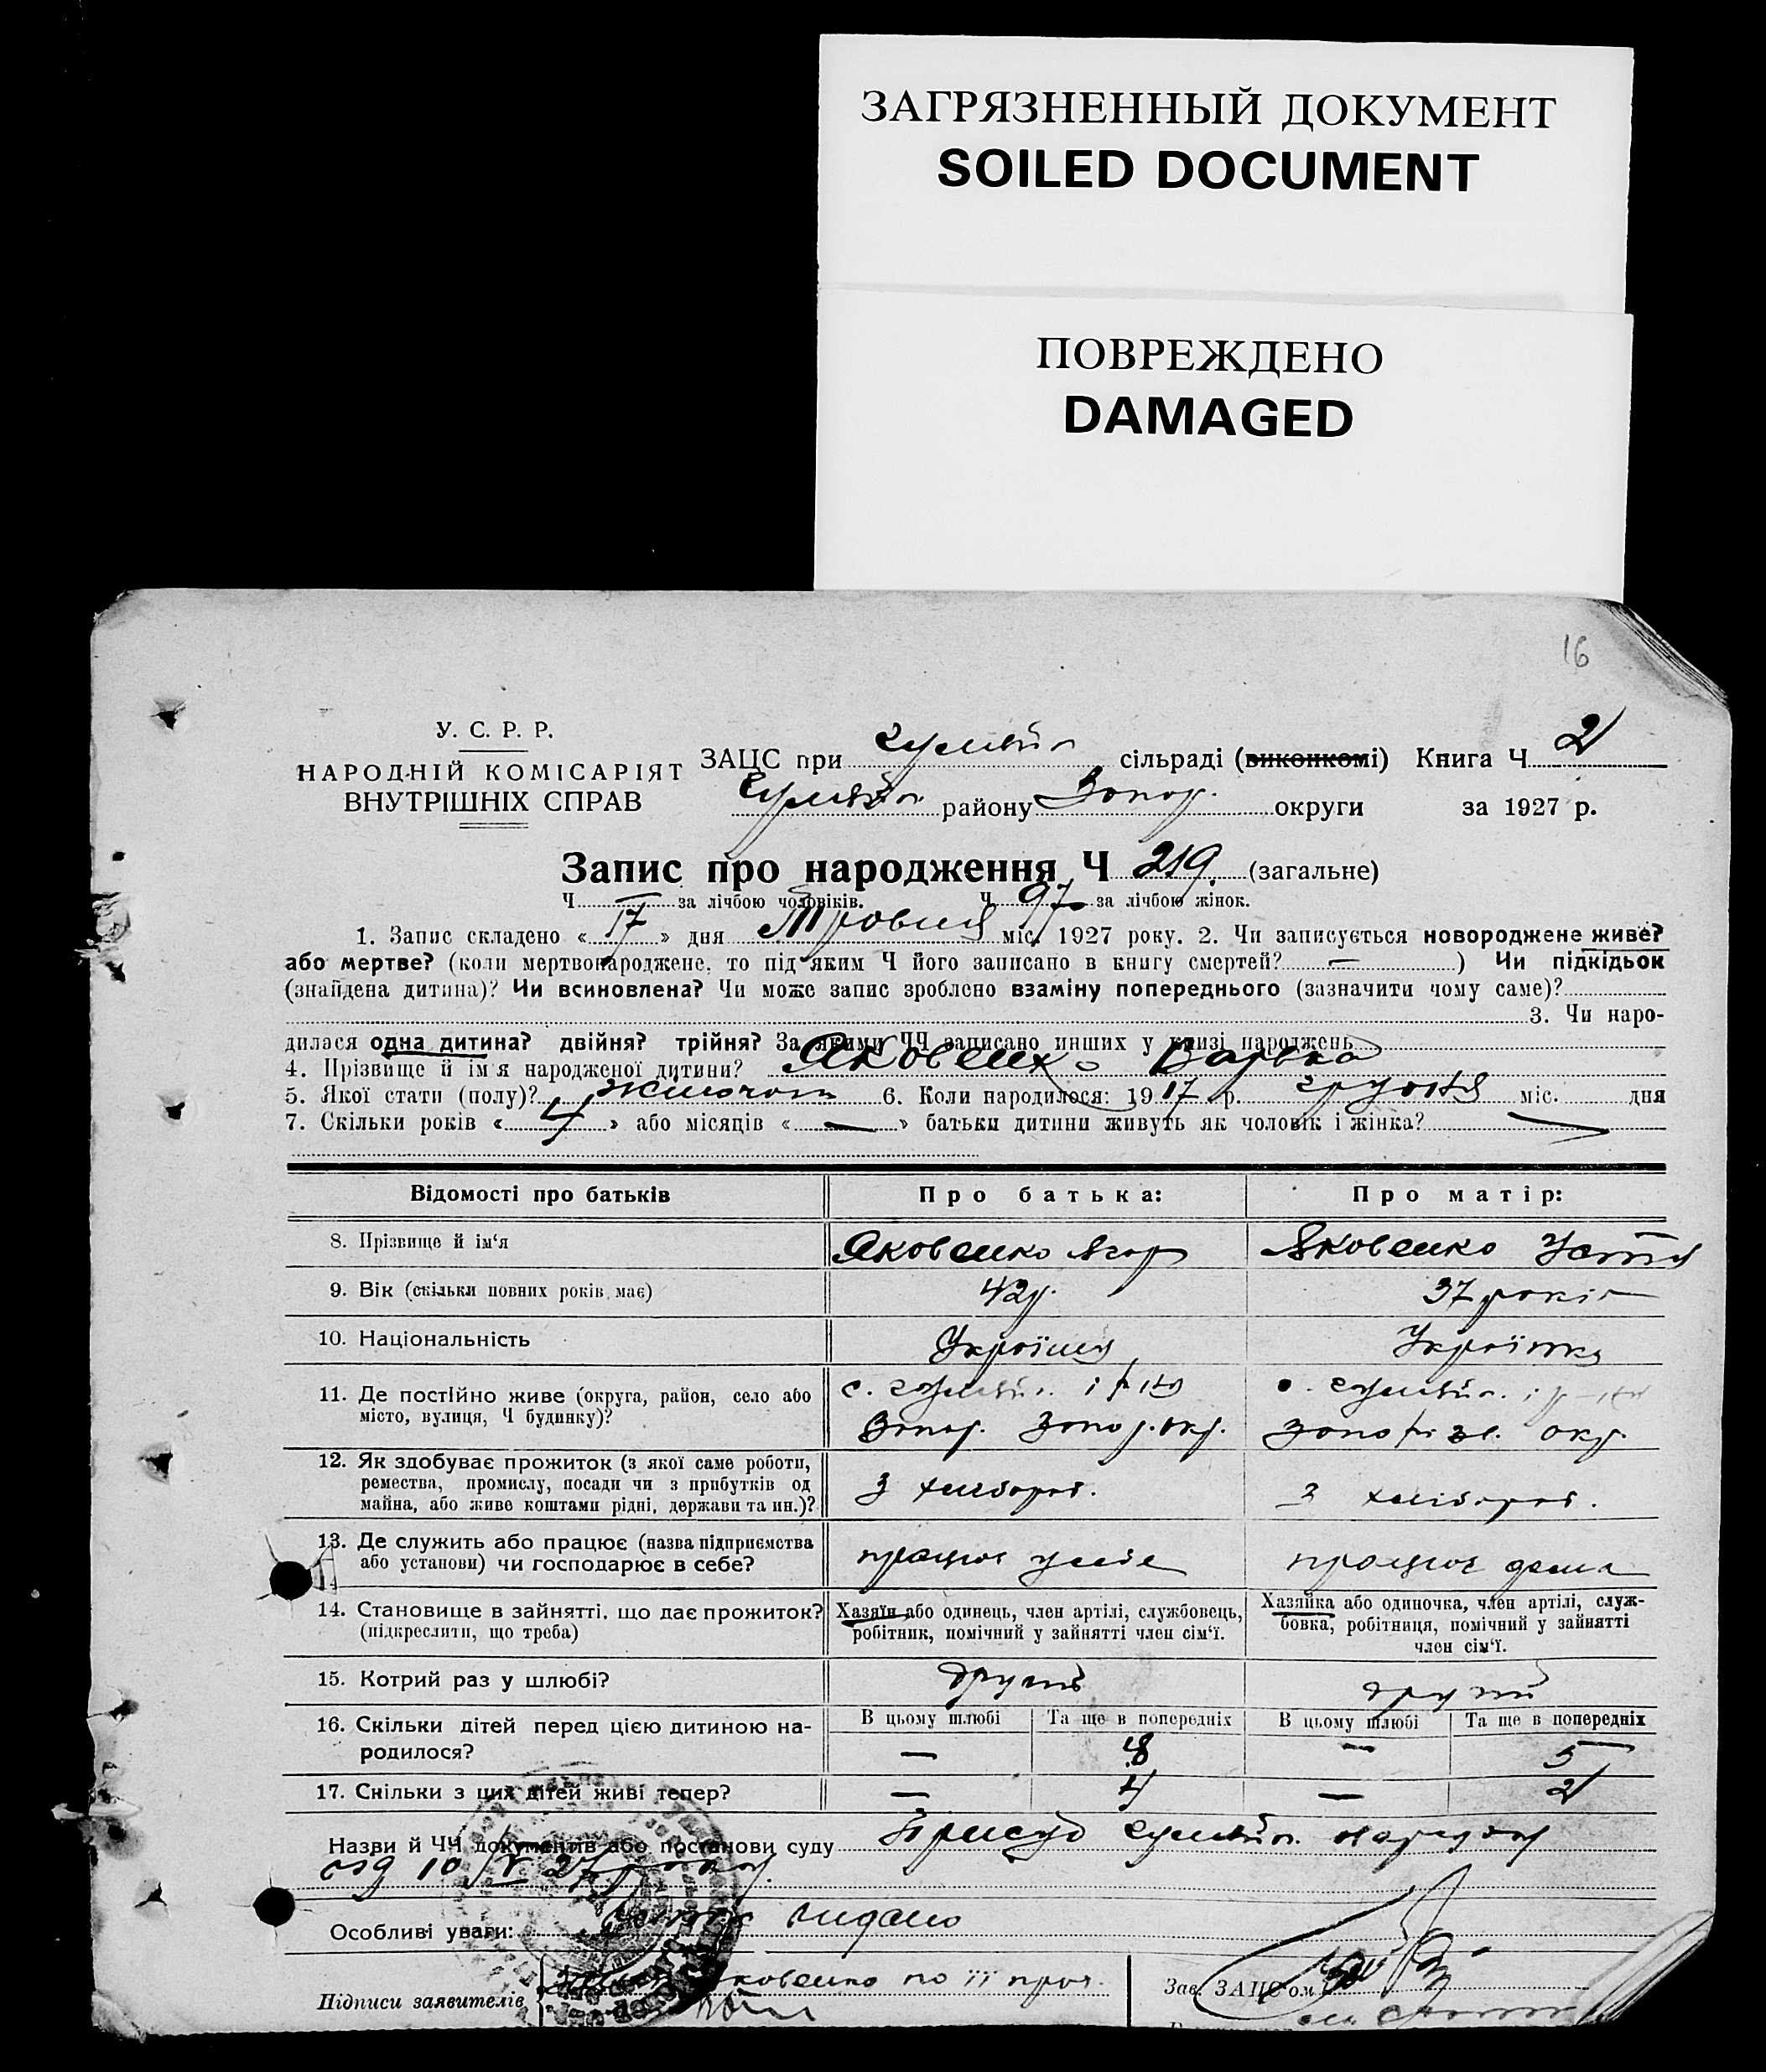 ЗАГРЯЗНЕННЫЙ ДОКУМЕНТ
SOILED DOCUMENT
ПОВРЕЖДЕНО
DAMAGED
16
У. С. Р. Р.
НАРОДНІЙ КОМІСАРІЯТ
ВНУТРІШНІХ СПРАВ
ЗАЦС при сільраді (виконкомі) Книга Ч 2
району Запор. округи за 1927 р.
Запис про народження Ч 219. (загальне)
Ч за лічбою чоловіків. Ч 97 за лічбою жінок.
1. Запис складено « 17 » дня Травня міс. 1927 року. 2. Чи записується новороджене живе?
або мертве? (коли мертвонароджене, то під яким Ч його записано в книгу смертей? — ) Чи підкідьок
(знайдена дитина)? Чи всиновлена? Чи може запис зроблено взаміну попереднього (зазначити чому саме)?
3. Чи наро-
дилася одна дитина? двійня? трійня? За якими ЧЧ записано инших у книзі народжень
4. Прізвище й ім'я народженої дитини? Яковенко Варька
5. Якої стати (полу)? жіночої 6. Коли народилося: 1917 р. грудня міс. дня
7. Скільки років « 4 » або місяців « — » батьки дитини живуть як чоловік і жінка? —
Відомості про батьків Про батька: Про матір:
8. Прізвище й ім'я Яковенко Ягор Яковенко Устя
9. Вік (скільки повних років має) 42 р. 37 років
10. Національність Українець Українка
11. Де постійно живе (округа, район, село або
місто, вулиця, Ч будинку)?
Запор. Запор. окр. окр.
12. Як здобуває прожиток (з якої саме роботи,
ремества, промислу, посади чи з прибутків од
майна, або живе коштами рідні, держави та ин.)?
З хлібороб. З хлібороб.
13. Де служить або працює (назва підприємства
або установи) чи господарює в себе?
працює у себе працює дома
14. Становище в зайнятті, що дає прожиток?
(підкреслити, що треба)
Хазяїн або одинець, член артілі, службовець,
робітник, помічний у зайнятті член сім'ї.
Хазяйка або одиночка, член артілі, служ-
бовка, робітниця, помічний у зайнятті
член сім'ї.
15. Котрий раз у шлюбі? другий другий
16. Скільки дітей перед цією дитиною на-
родилося?
В цьому шлюбі Та ще в попередніх В цьому шлюбі Та ще в попередніх
— 8 — 5
17. Скільки з цих дітей живі тепер? — 4 — 2
Назви й ЧЧ документів або постанови суду Присуд
од 10/V 27 року.
Особливі уваги: видано
Підписи заявителів Яковенко по її проз.
Зав. ЗАЦС'ом